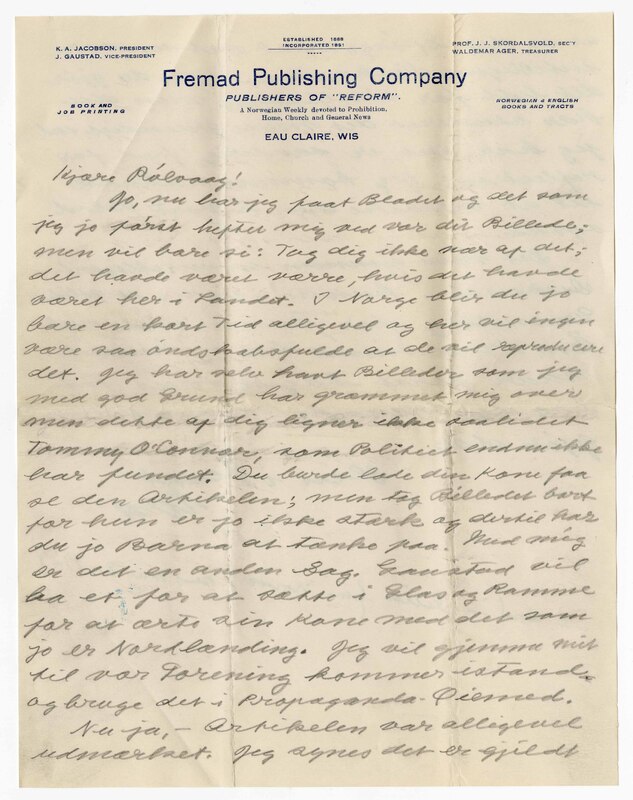 ESTABLISHED 1888
INCORPORATED 1891
K. A. JACOBSON, PRESIDENT
J. GAUSTAD, VICE-PRESIDENT
PROF. J. J. SKORDALSVOLD, SEC'Y
WALDEMAR AGER, TREASURER
Fremad Publishing Company
PUBLISHERS OF "REFORM".
BOOK AND
JOB PRINTING
A Norwegian Weekly devoted to Prohibition,
Home, Church and General News
NORWEGIAN & ENGLISH
BOOKS AND TRACTS
EAU CLAIRE, WIS
Kjære Rölvaag!
Jo, nu har jeg faat Bladet og det som
jeg jo först hefter mig ved var dit Billede;
men vil bare si: Tag dig ikke nær af det;
det havde været værre, hvis det havde
været her i Landet. I Norge blir du jo
bare en kort Tid alligevel og her vil ingen
være saa öndskabsfulde at de vil reproducere
det. Jeg har selv havt Billeder som jeg
med god Grund har græmmet mig over
men dette af dig ligner ikke saalidet
Tommy O'Connor, som Politiet endnu ikke
har fundet. Du burde lade din Kone faa
se den Artikelen; men tag Billedet bort
for hun er jo ikke stærk og dertil har
du jo Barna at tænke paa. Med mig
er det en anden Sag. Gaustad vil
ha et for at sætte i Glas og Ramme
for at ærte sin Kone med det som
jo er Nordlænding. Jeg vil gjemme mit
til vor Forening kommer istand
og bruge det i Propaganda-Öiemed.
Nu ja, – Artikelen var alligevel
udmærket. Jeg synes det er gjildt